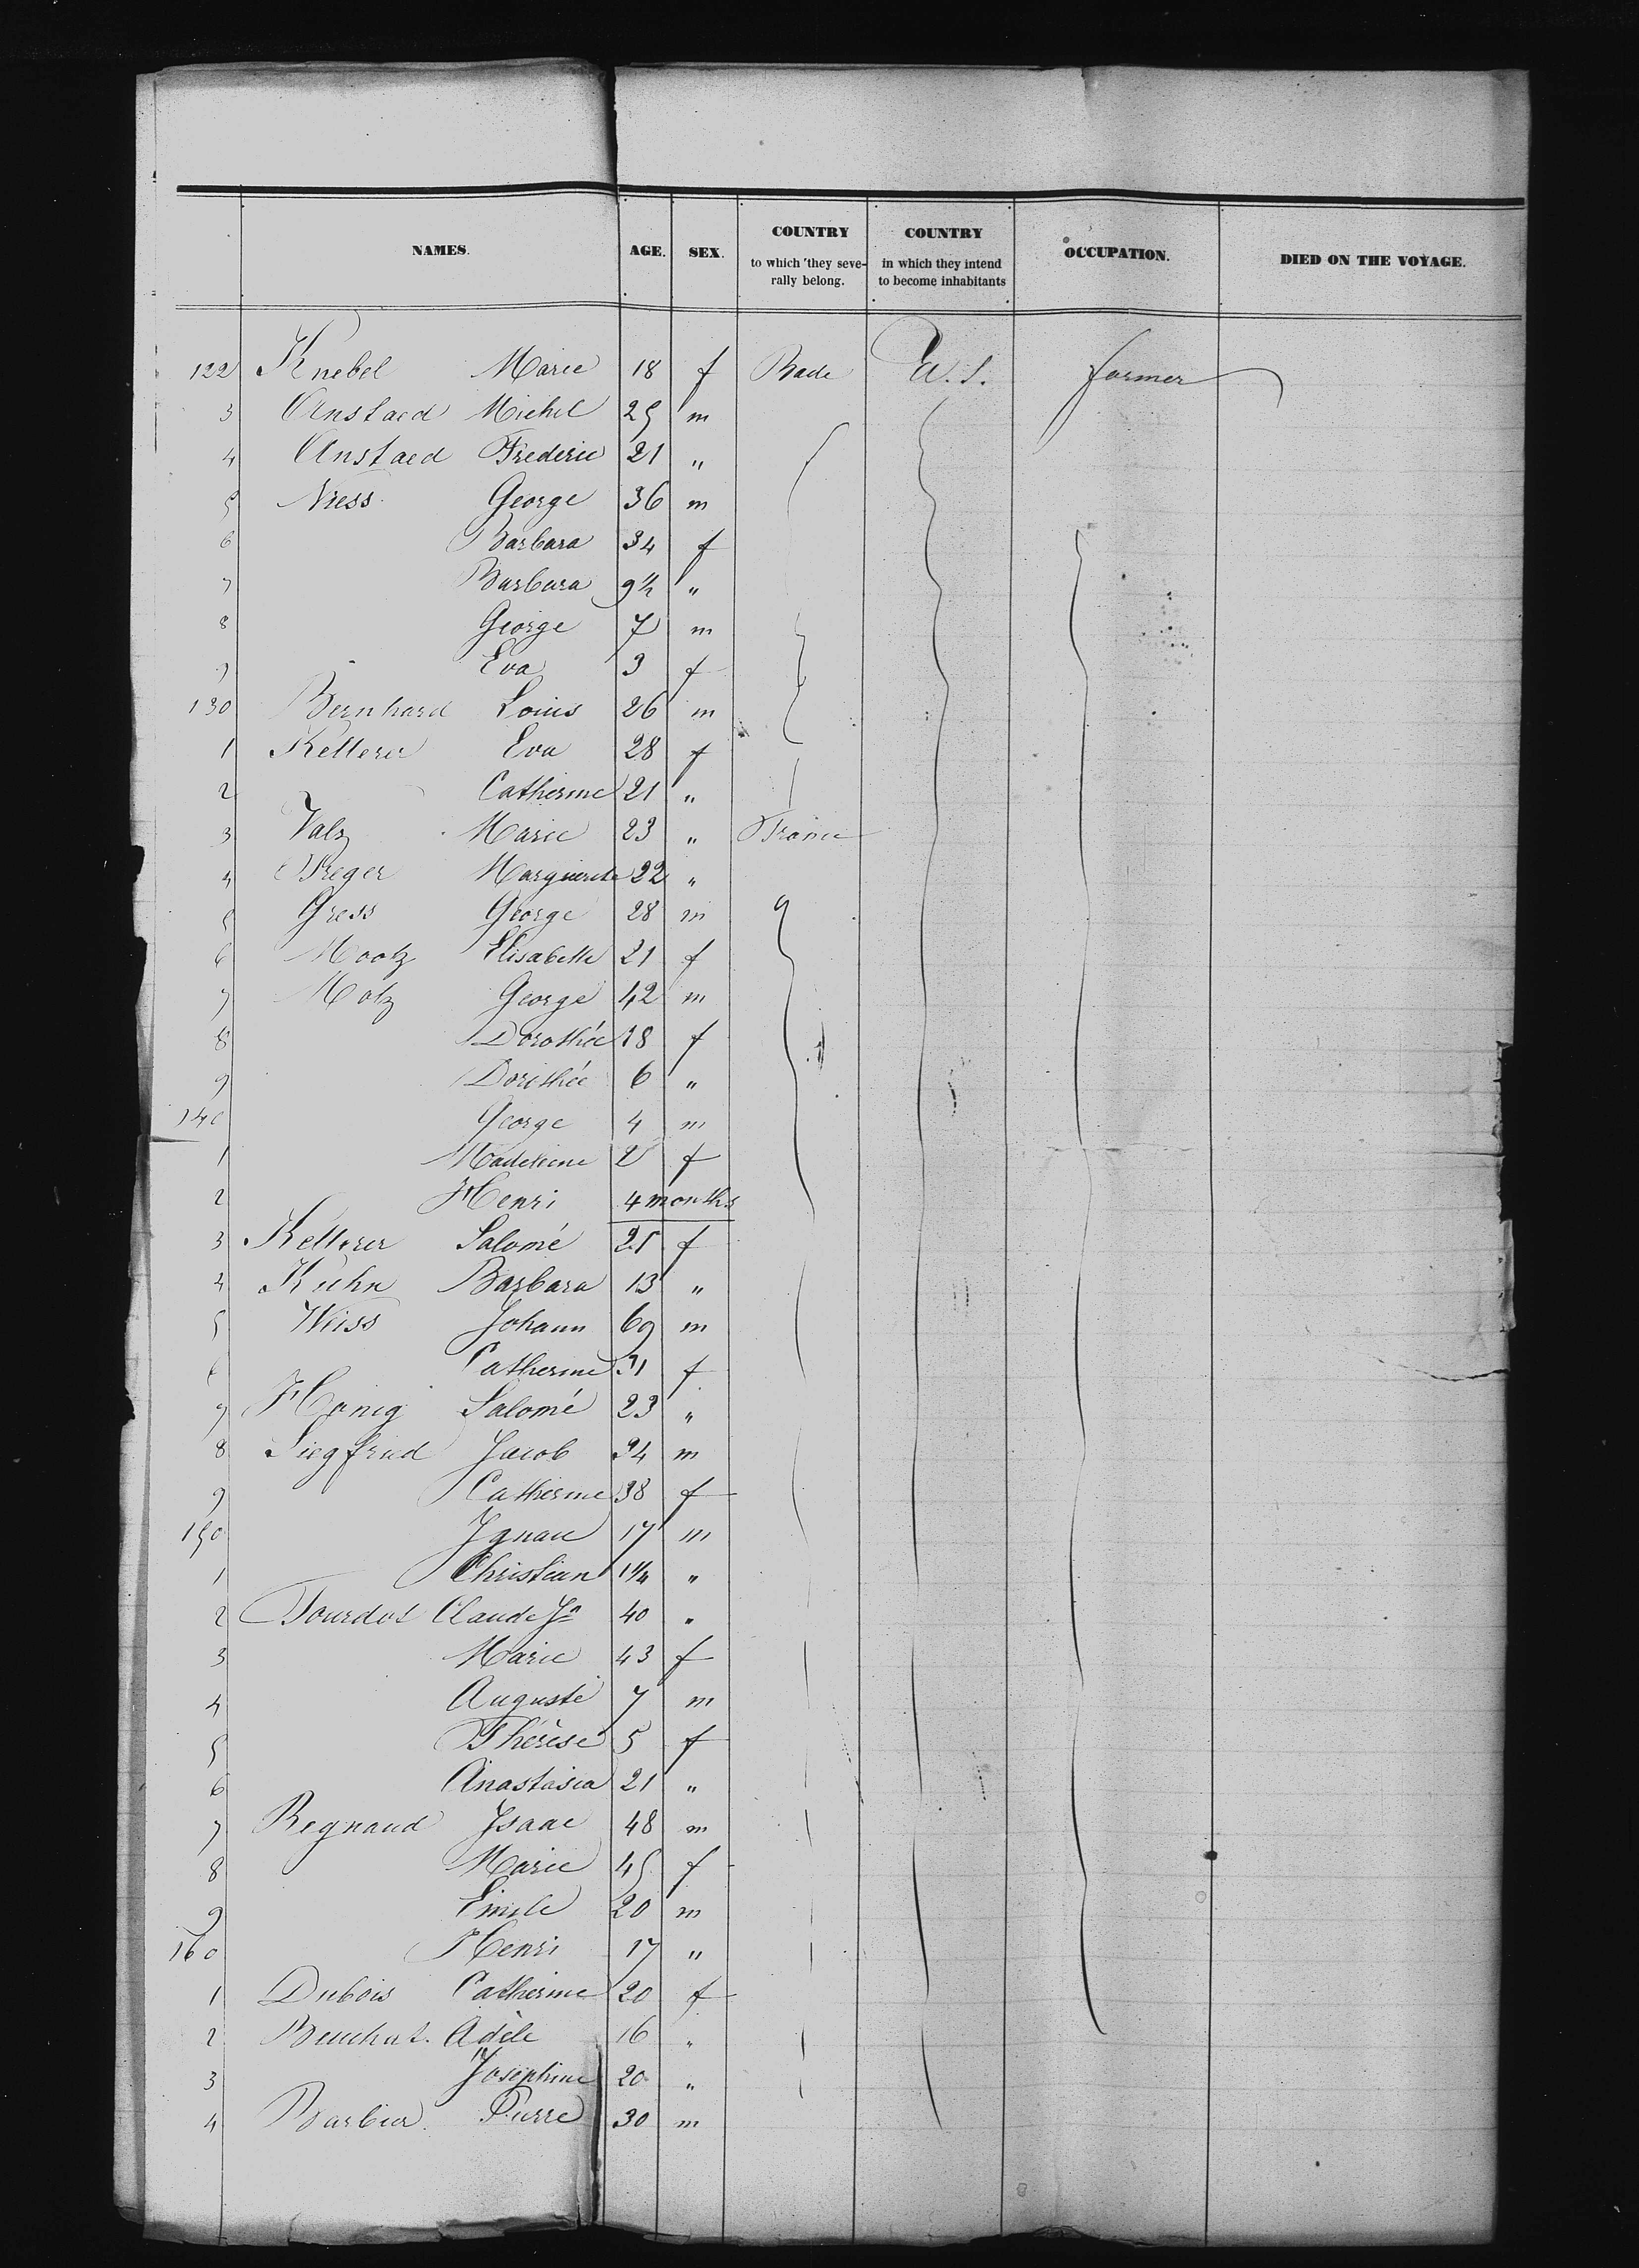 NAMES. AGE. SEX. COUNTRY to which they seve- rally belong. COUNTRY in which they intend to become inhabitants OCCUPATION. DIED ON THE VOYAGE.
122 Knebel Marie 18 f Bade U.S. farmer
3 Anstaed Michel 25 m
4 Anstaed Frederic 21 "
5 Niess George 36 m
6 Barbara 34 f
7 Barbara 9½ "
8 George 7 m
9 Eva 3 f
130 Bernhard Louis 26 m
1 Ketterer Eva 28 f
2 Catherine 21 "
3 Valz Marie 23 " France
4 Preger Marguerite 22 "
5 Gress George 28 m
6 Mootz Elisabette 21 f
7 Motz George 42 m
8 Dorothée 38 f
9 Dorothée 6 "
140 George 4 m
1 Madeleine 2 f
2 Henri 4 months
3 Ketterer Salomé 21 f
4 Kuhn Barbara 13 "
5 Weiss Johann 69 m
6 Catherine 31 f
7 Honig Salomé 23 "
8 Siegfried Jacob 34 m
9 Catherine 38 f
150 Ignace 17 m
1 Christian 1¼ "
2 Tourdot Claude Jn 40 "
3 Marie 43 f
4 Auguste 7 m
5 Thérèse 5 f
6 Anastasia 21 "
7 Regnaud Isaac 48 m
8 Marie 45 f
9 Emile 20 m
160 Henri 17 "
1 Dubois Catherine 20 f
2 Beuchat Adèle 16 "
3 Josephine 20 "
4 Barbier Pierre 30 m